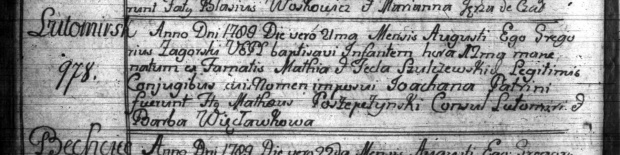 runt Jaty Blasius Woskowicz et Marianna
Lutomirsk Anno Dni 1798 Die veró Mensis Augusti Ego Grego
978. rius Zagorski baptisavi Infantem hora mane
natum ex Famatis Mathia et Tecla Szulczewskie Legitimis
Conjugibus cui Nomen imposui Joachana Patrini
fuerunt Matheus Postepetynski Consul Lutomirs. et
Barba Więcławkowa
Bechcice Anno Dni 1798 Die vero 22da Mensis Augusti Ego Gregori